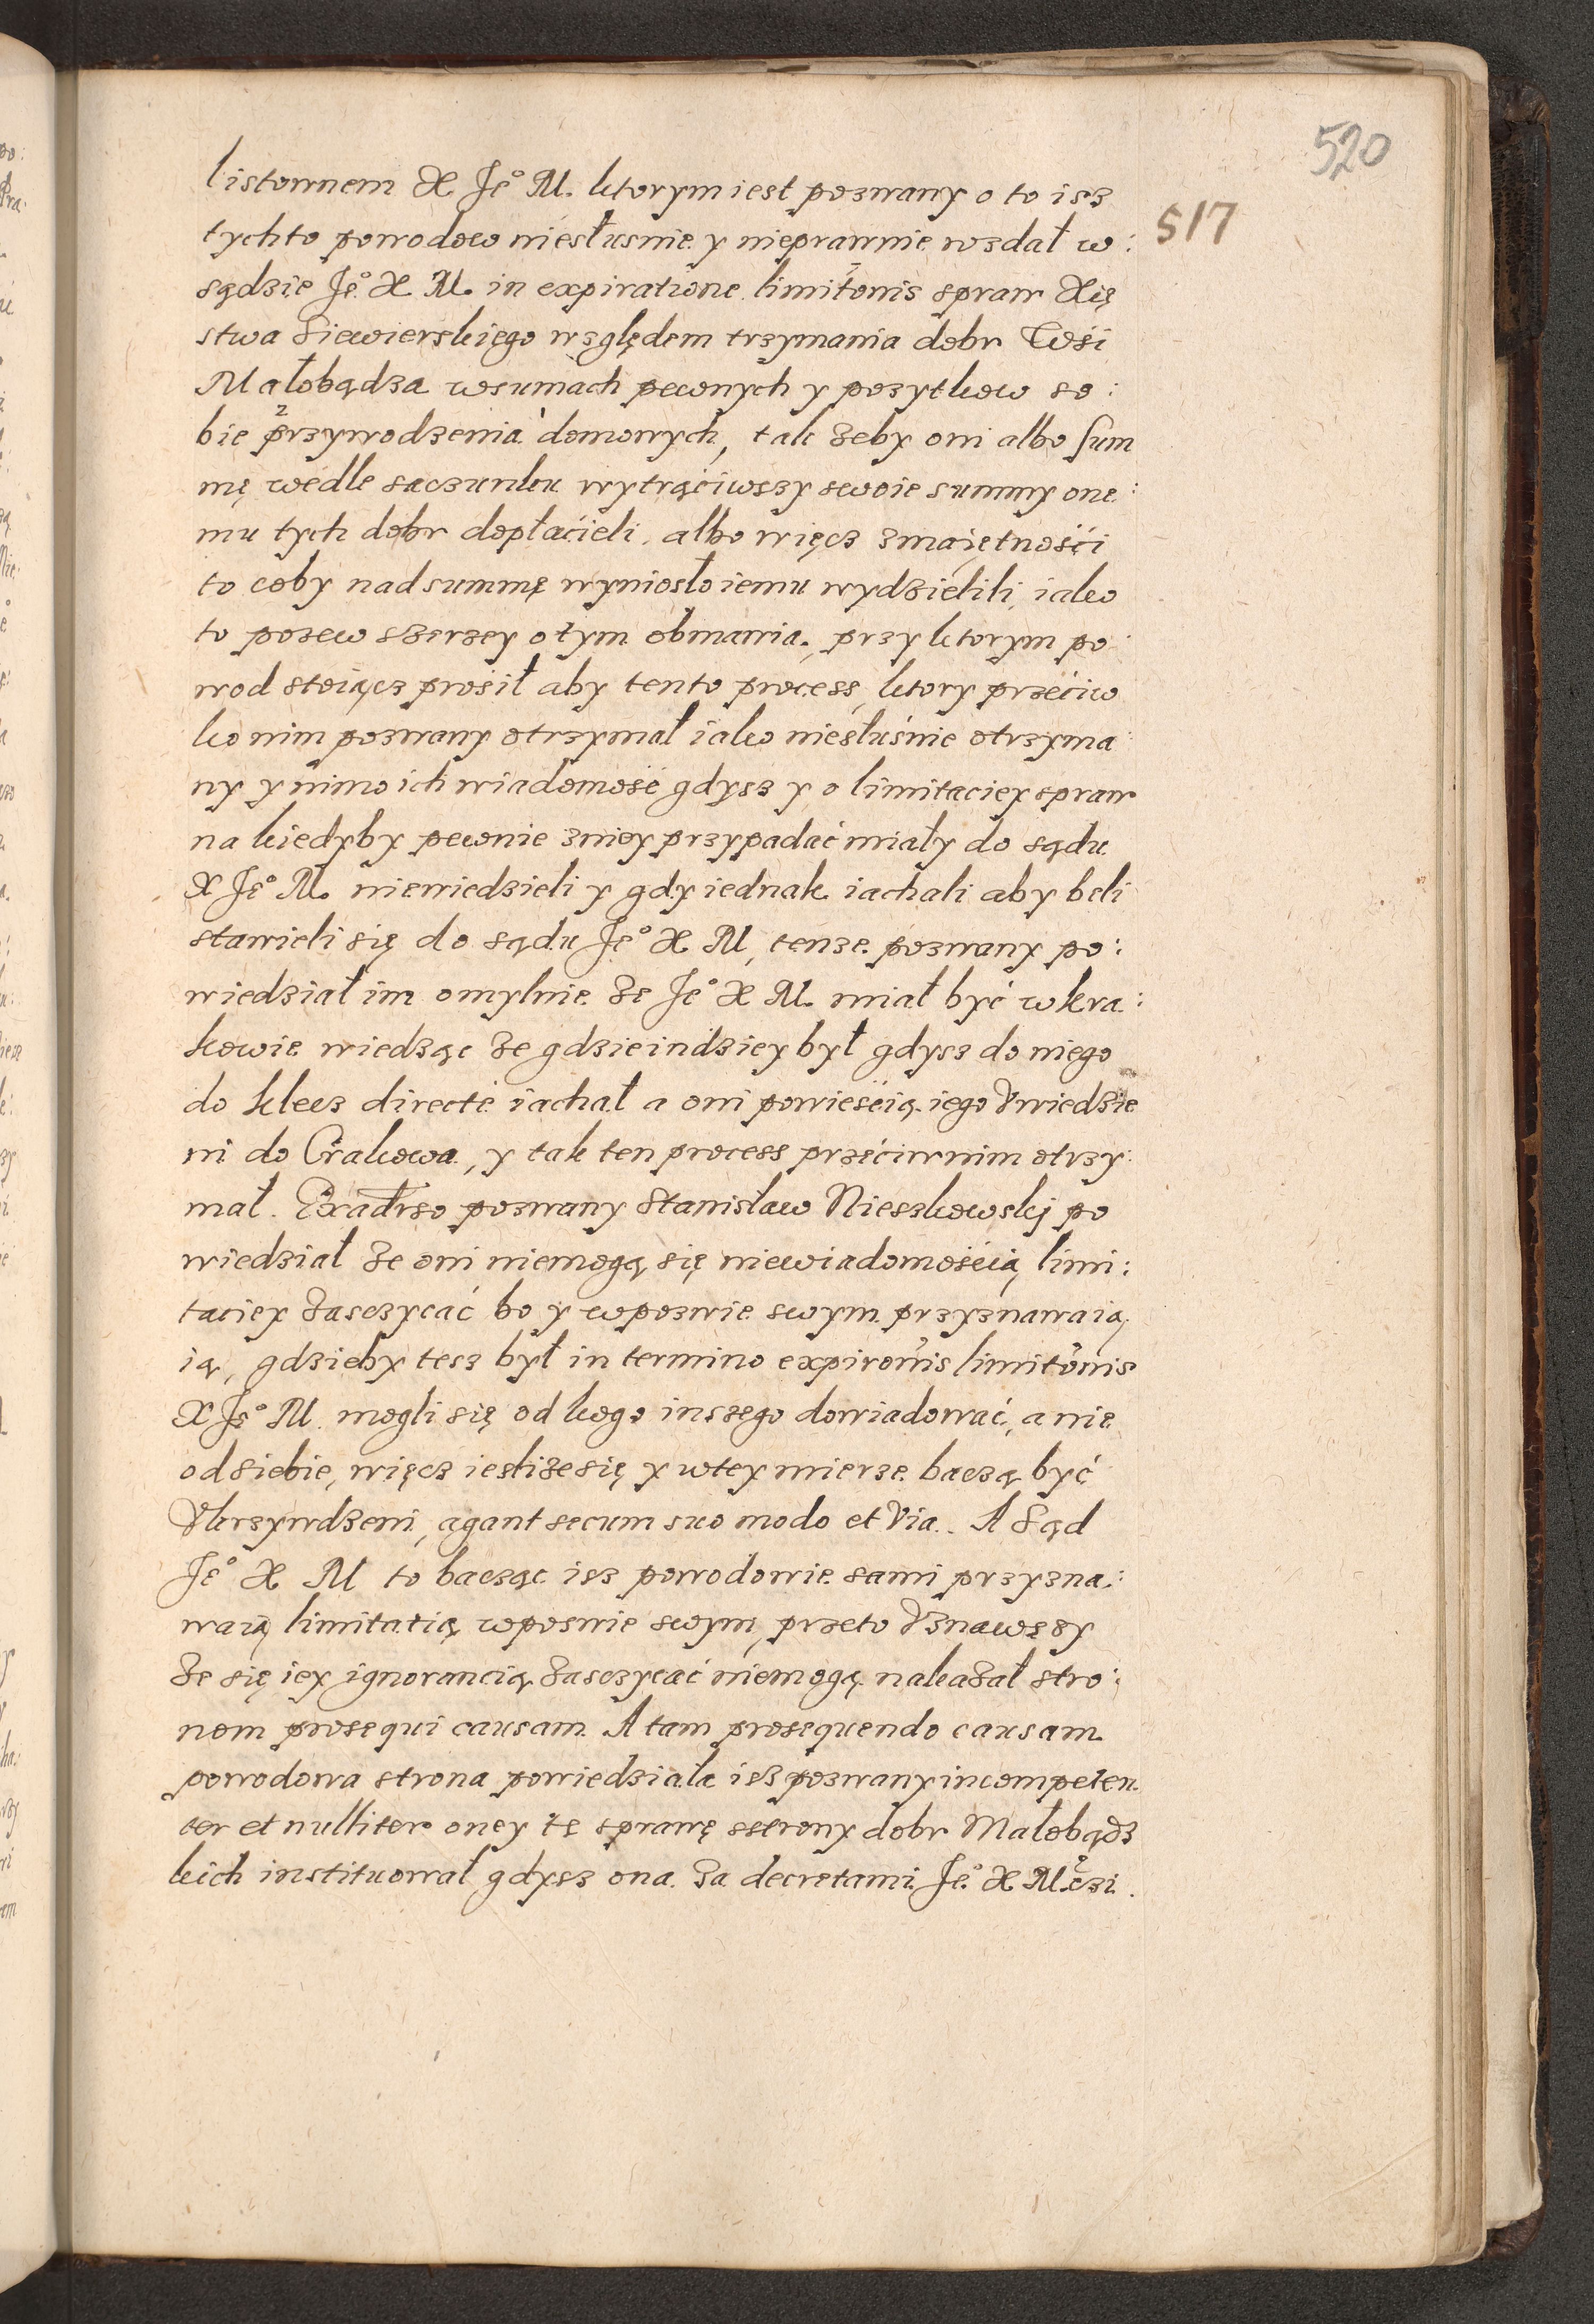 520
517
listownem X Je° M. ktorym iest pozwany o to isz
tychto powodow niesłusnie y nieprawnie wzdał w:
sądzie Je° X M. in expiratione limitonis spraw Xię
stwa Siewierskięgo względem trzymania dobr Wśi
Małobądza wsumach pewnych y pozytkow so:
bie przywodzenia domowych, tak zeby oni albo sum
mę wedle saczunku wytrąćiwszy swoie summy one:
mu tych dobr dopłaćieli, albo więcz zmaiętnośći
to coby nad summę wyniosło iemu wydzielili, iako
to pozew szerzey o tym obmawia, przy ktorym po:
wod stoiącz prośił aby tento process, ktory przećiw
ko nim pozwany otrzymał iako niesłuśnie otrzyma:
ny y mimo ich wiadomość gdysz y o limitaciey spraw
na kiedyby pewnie zniey przypadać miały do sądu
X Je° M. niewiedzieli y gdy iednak iachali aby beli
stawieli się do sądu Je° X M, tenze pozwany po:
wiedział im omylnie ze Je° X M. miał być w kra:
kowie wiedząc ze gdzieindziey był gdysz do niego
do klecz directe iachał a oni powieśćią iego Vwiedzie
ni do Crakowa, y tak ten process przećiw nim otrzy:
mał. Exadverso pozwany Stanisław Nieszkowskj po
wiedział ze oni niemogą się niewiadomośćią limi:
taciey zasczycać bo y wpozwie swym przyznawaią
ią, gdzieby tesz był in termino expironis limitonis
X Je° M. mogli się od kogo inszego dowiadować, a nie
od siebie, więcz iesliże się y wtey mierze baczą być
Vkrzywdzeni, agant secum suo modo et via. A Sąd
Je° X M to bacząc isz powodowie sami przyzna:
waią limitatią wposwie swym, przeto Vznawszy
ze się iey ignorancią zasczycać niemogą nakazał stro:
nom prosequi causam. A tam prosequendo causam
powodowa strona powiedziała isz pozwany incompeten
ter et nulliter oney tę sprawę sstrony dobr Małobądz
kich instituował gdysz ona za decretami Je° X M czi